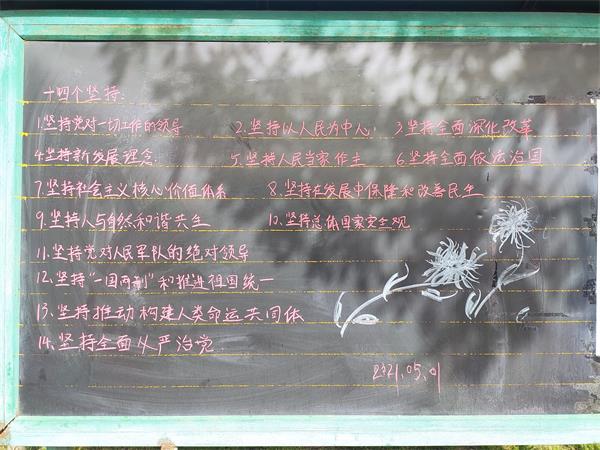 十四个坚持:
1.坚持党对一切工作的领导 2.坚持以人民为中心 3.坚持全面深化改革
4.坚持新发展理念 5.坚持人民当家作主 6.坚持全面依法治国
7.坚持社会主义核心价值体系 8.坚持在发展中保障和改善民生
9.坚持人与自然和谐共生 10.坚持总体国家安全观
11.坚持党对人民军队的绝对领导
12.坚持“一国两制”和推进祖国统一
13.坚持推动构建人类命运共同体
14.坚持全面从严治党
2021.05.01